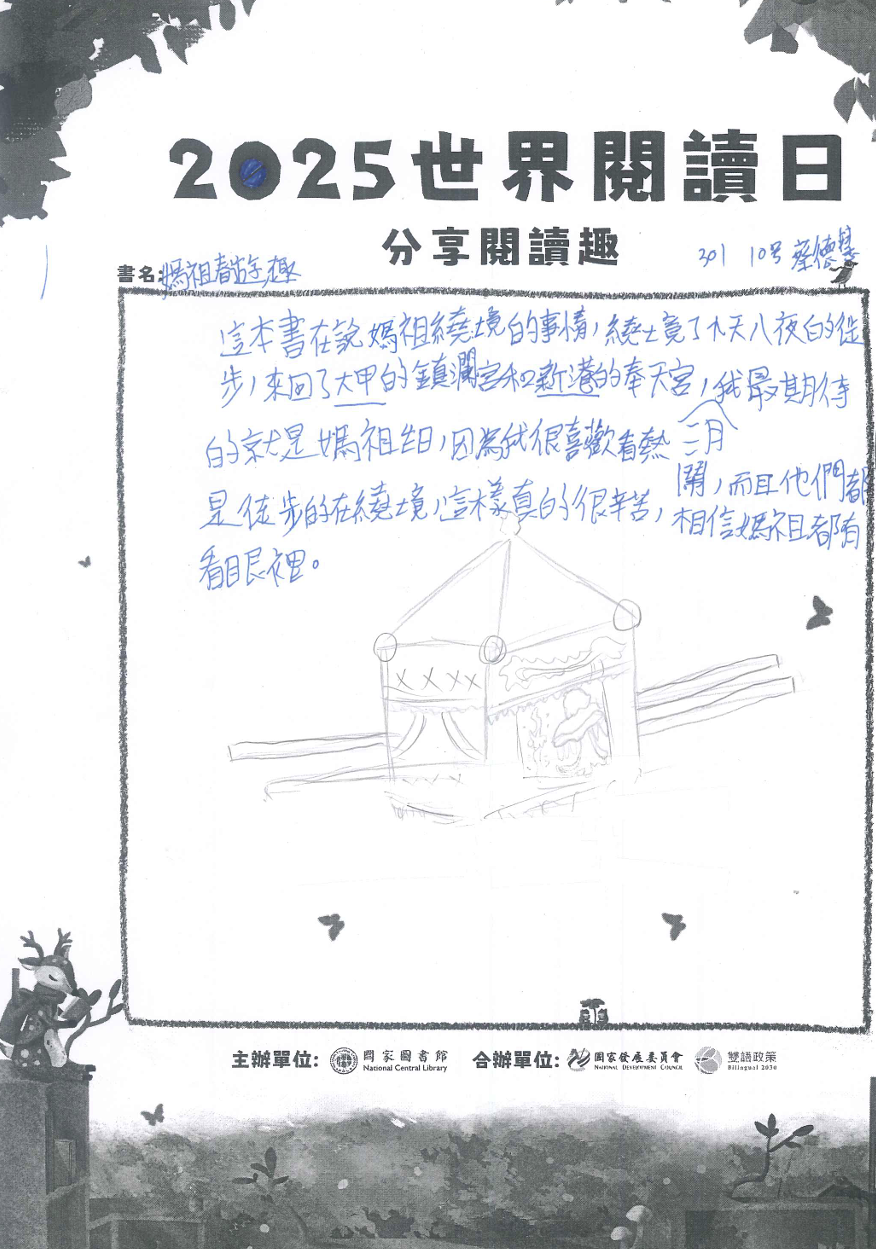 2025世界閱讀日
分享閱讀趣
書名:媽祖春遊趣
301 10号 蔡德基
這本書在說媽祖繞境的事情,繞境了九天八夜的徒
步,來回了大甲的鎮瀾宮和新港的奉天宮,我最期待
的就是媽祖生日,因為我很喜歡看熱
三月
鬧,而且他們都
是徒步的在繞境,這樣真的很辛苦,相信媽祖都有
看目艮裡。
主辦單位: 國家圖書館 合辦單位: 國家發展委員會 雙語政策
National Central Library NATIONAL DEVELOPMENT COUNCIL Bilingual 2030